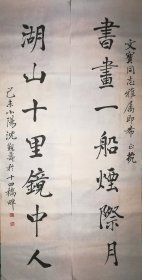 文寶同志雅屬即希正
書畫一船煙際月
湖山十里鏡中人
己未小陽沈覲壽於十四橋畔